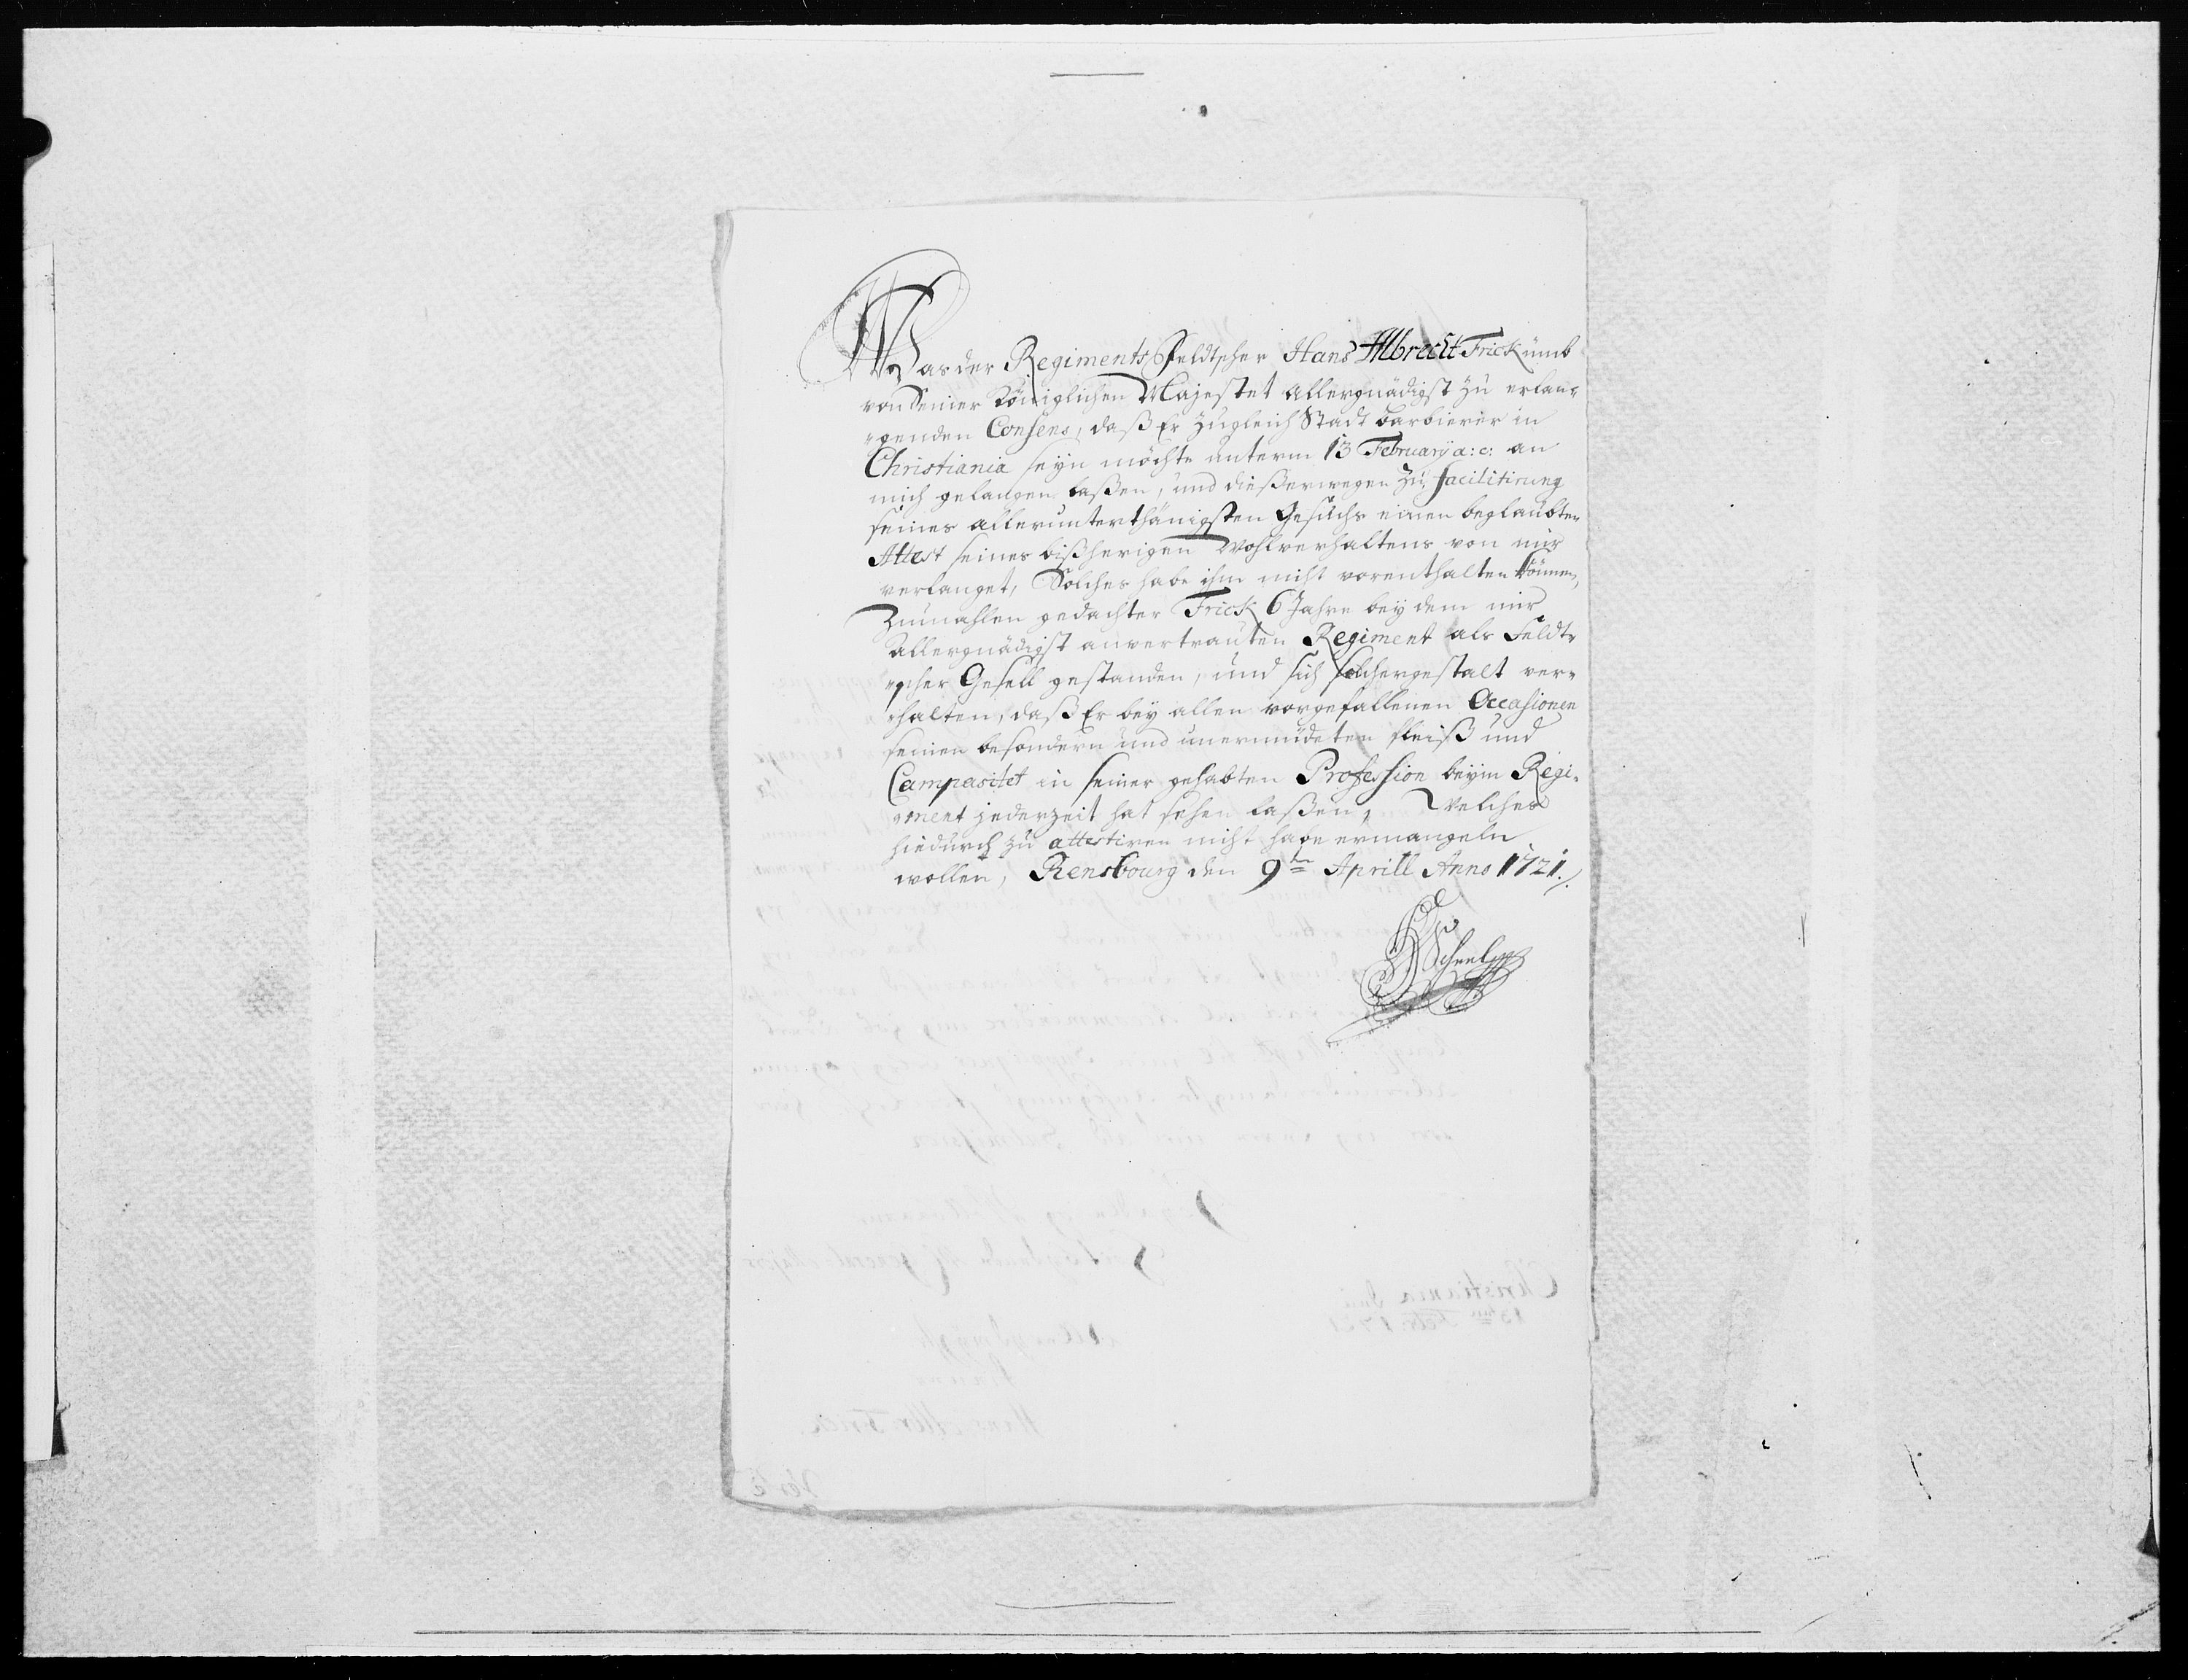 Was der Regiments Feldtscher Hans Albrecht Frick ümb
von Seiner Königlichen Majestet allergnädigst zu erlan¬
¬genden Consens, daß Er zugleich Stadt Barbierer in
Christiania seÿn möchte unterm 13 Februarÿ a: c: an
mich gelangen laßen, und dießerwegen zu facilitirung
seines allerunterthänigsten Gesuchs einen beglaubten
Attest seines bißherigen Wohlverhaltens von mir
verlanget, Solches habe ihm nicht vorenthalten können,
Zumahlen gedachter Frick 6 Jahre beÿ dem mir
Allergnädigst anvertrauten Regiment als Feldt¬
¬scher Gesell gestanden, und sich solchergestalt ver¬
¬halten, daß Er beÿ allen vorgefallenen Occasionen
seinen besondern und unermüdeten fleiß und
Campasitet in seiner gehabten Profession beÿm Regi¬
¬ment jederzeit hat sehen laßen, Welches
hiedurch zu attestiren nicht habe ermangeln
wollen, Rensbourg den 9ten Aprill Anno 1721.
Scheel